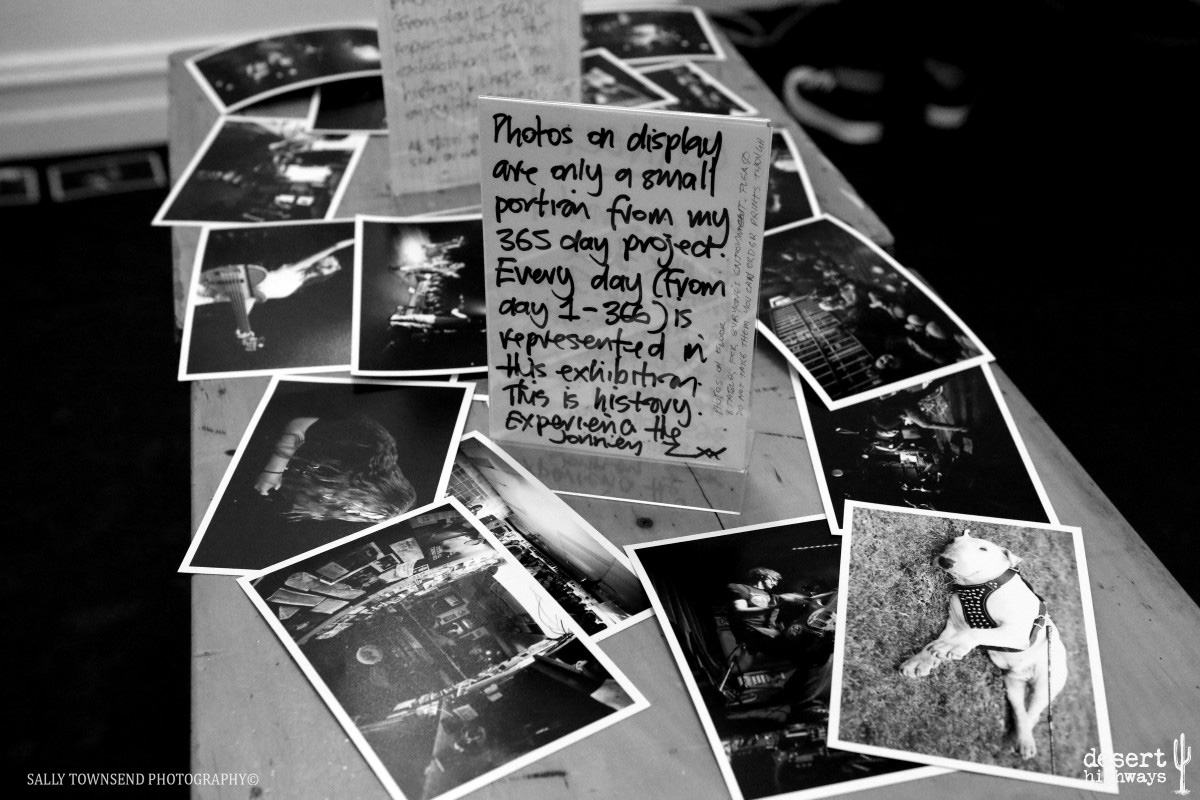 (From day 1-366) is
represented in this
exhibition.
Photos on display
are only a small
portion from my
365 day project.
Every day (from
day 1-366) is
represented in
this exhibition.
This is history.
Experience the
Jonniey
PHOTOS ON FLOOR
& TABLE FOR EVERYONE'S ENTOYMENT. PLEASE
DO NOT TAKE THEM YOU CAN ORDER PRINTS THROUGH
SALLY TOWNSEND PHOTOGRAPHY©
desert
highways